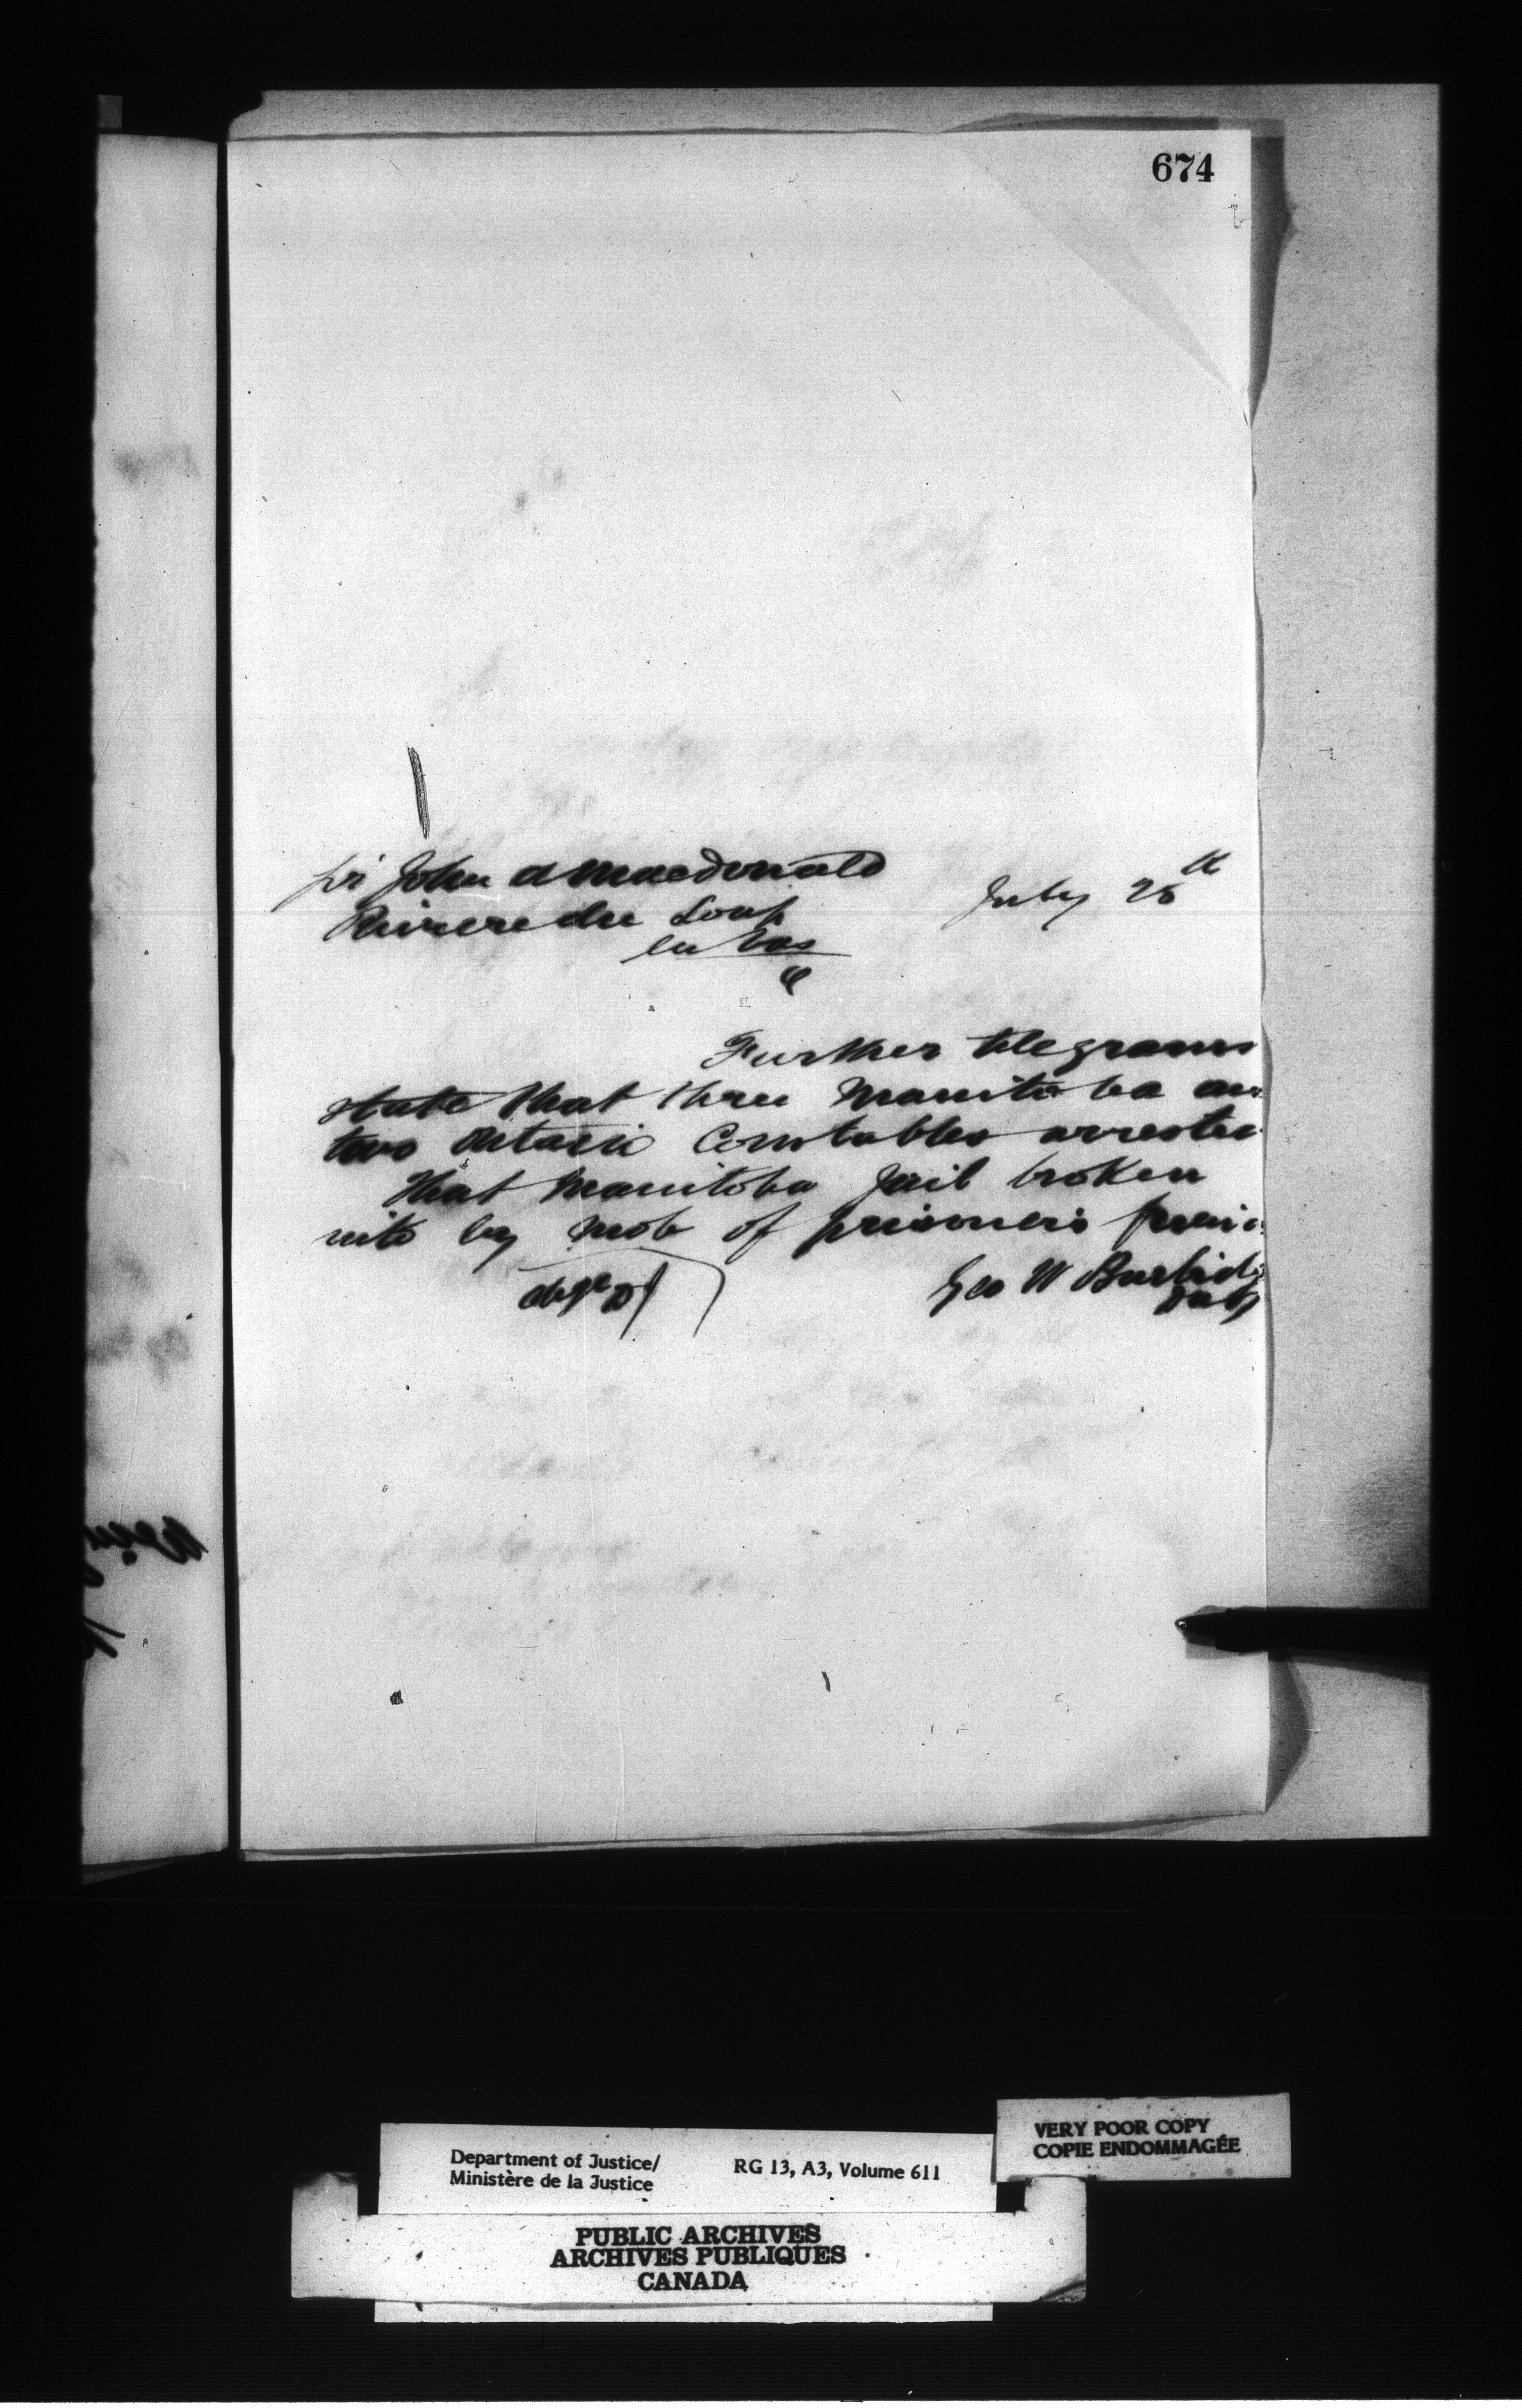 674
Sir John A Macdonald
July 28th
Riviere du Loup
en bas
Further telegrams
state that three Manitoba an
two Ontario Constables arreste
that Manitoba Jail broken
into by mob of prisoners
Geo W Burbidg
Department of Justice/
Ministère de la Justice
RG 13, A3, Volume 611
VERY POOR COPY
COPIE ENDOMMAGÉE
PUBLIC ARCHIVES
ARCHIVES PUBLIQUES
CANADA